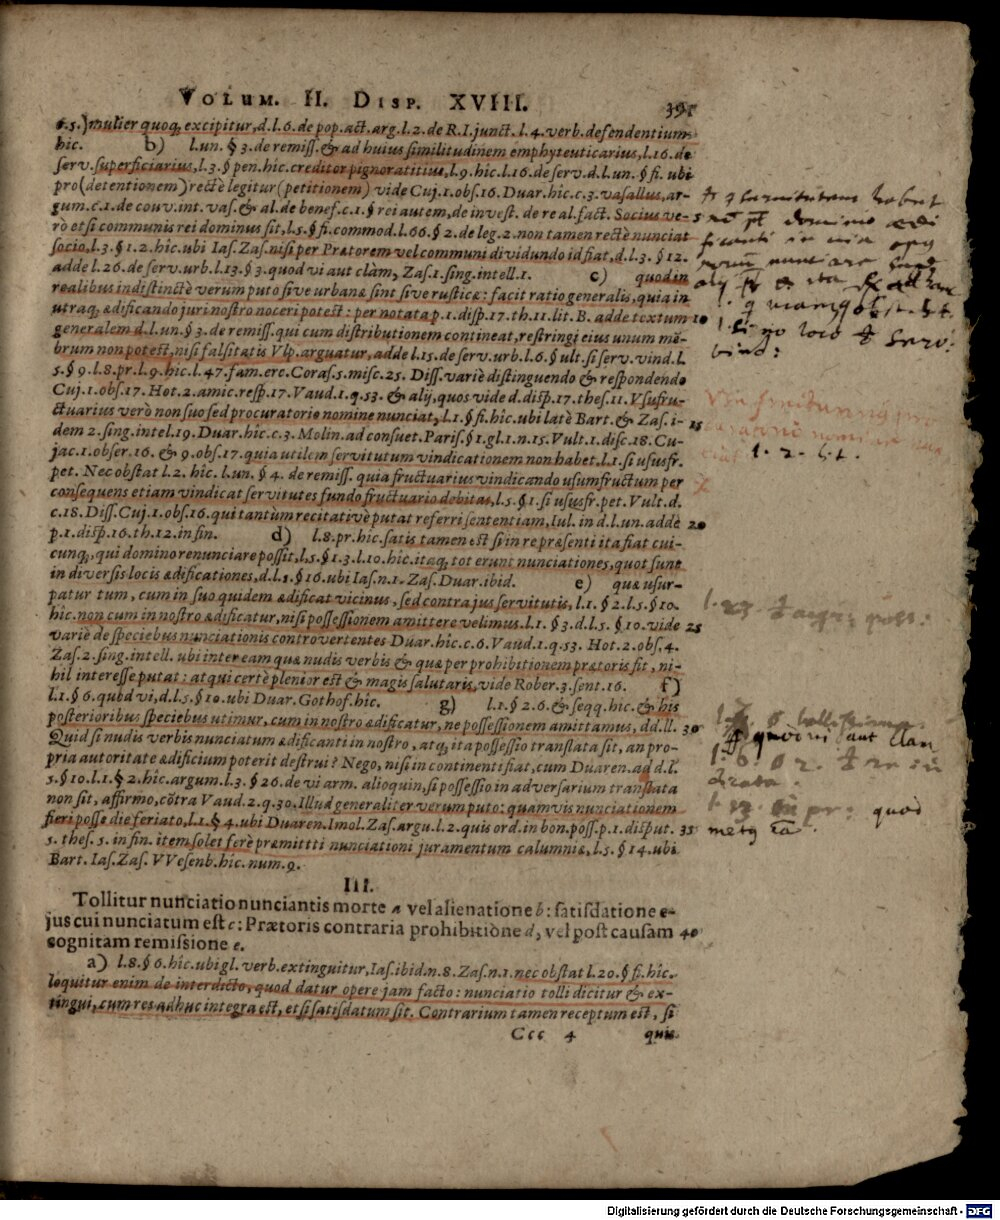 VOLUM. II. DISP. XVIII. 391
mulier quoq; excipitur, d.l.6. de pop. act. arg. l.2. de R.I. junct. l.4. verb. defendentium
hic. b) l.un. § 3. de remiss. & ad huius similitudinem emphyteuticarius, l.16. de
serv. superficiarius, l.3. § pen. hîc. creditor pignoratitius, l.9. hic. l.16. de serv. d.l. un. § fi. ubi
pro (detentionem) rectè legitur (petitionem) vide Cuj. 1. obs. 16. Duar. hîc. c.3. vasallus, ar-
gum. c.1. de couv. int. vas. & al. de benef. c.1. § rei autem, de invest. de re al. fact. Socius ve- 5
rò etsi communis rei dominus sit, l.5. § fi. commod. l.66. § 2. de leg. 2. non tamen rectè nunciat
socio, l.3. § 1.2. hîc. ubi Ias. Zas. nisi per Prætorem vel communi dividundo id fiat, d.l.3. § 12.
adde l.26. de serv. urb. l.13. § 3. quod vi aut clàm, Zas. 1. sing. intell. 1. c) quod in
realibus indistinctè verum puto sive urbanæ sint sive rusticæ: facit ratio generalis, quia in
utraq; ædificando juri nostro noceri potest: per notata p.1. disp. 17. th. 11. lit. B. adde textum 10
generalem d.l. un. § 3. de remiss. qui cum distributionem contineat, restringi eius unum mē-
brum non potest, nisi falsitatis Vlp. arguatur, adde l.15. de serv. urb. l.6. § ult. si serv. vind. l.
5. § 9. l.8. pr. l.9. hîc. l.47. fam. erc. Coras. 5. misc. 25. Diss. variè distinguendo & respondendo
Cuj. 1. obs. 17. Hot. 2. amic. resp. 17. Vaud. 1. q. 53. & alij, quos vide d. disp. 17. thes. 11. Vsufru-
ctuarius verò non suo sed procuratorio nomine nunciat, l.1. § fi. hîc. ubi latè Bart. & Zas. i- 15
dem 2. sing. intel. 19. Duar. hîc. c.3. Molin. ad consuet. Paris. § 1. gl. 1. n. 15. Vult. 1. disc. 18. Cu-
jac. 1. obser. 16. & 9. obs. 17. quia utilem servitutum vindicationem non habet, l.1. si ususfr.
pet. Nec obstat l.2. hîc. l. un. § 4. de remiss. quia fructuarius vindicando usumfructum per
consequens etiam vindicat servitutes fundo fructuario debitas, l.5. § 1. si ususfr. pet. Vult. d.
c.18. Diss. Cuj. 1. obs. 16. qui tantùm recitativè putat referri sententiam, Iul. in d.l. un. adde 20
p.1. disp. 16. th. 12. in fin. d) l.8. pr. hîc. satis tamen est si in re præsenti ita fiat cui-
cunq;, qui domino renunciare possit, l.5. § 1.3. l.10. hîc. itaq; tot erunt nunciationes, quot sunt
in diversis locis ædificationes, d.l.5. § 16. ubi Ias. n.1. Zas. Duar. ibid. e) quæ usur-
patur tum, cum in suo quidem ædificat vicinus, sed contra jus servitutis, l.1. § 2. l.5. § 10.
hîc. non cum in nostro ædificatur, nisi possessionem amittere velimus. l.1. § 3. d.l.5. § 10. vide 25
variè de speciebus nunciationis controvertentes Duar. hîc. c.6. Vaud. 1. q. 53. Hot. 2. obs. 4.
Zas. 2. sing. intell. ubi inter eam quæ nudis verbis & quæ per prohibitionem prætoris fit, ni-
hil interesse putat: atqui certè plenior est & magis salutaris, vide Rober. 3. sent. 16. f)
l.1. § 6. quod vi, d.l.5. § 10. ubi Duar. Gothof. hîc. g) l.1. § 2.6. & seqq. hîc. & his
posterioribus speciebus utimur, cum in nostro ædificatur, ne possessionem amittamus, dd. ll. 30
Quid si nudis verbis nunciatum ædificanti in nostro, atq; ita possessio translata sit, an pro-
pria autoritate ædificium poterit destrui? Nego, nisi in continenti fiat, cum Duaren. ad d.l.
5. § 10. l.1. § 2. hîc. argum. l.3. § 26. de vi arm. alioquin, si possessio in adversarium translata
non sit, affirmo, cōtra Vaud. 2. q. 30. Illud generaliter verum puto: quamvis nunciationem
fieri posse die feriato, l.1. § 4. ubi Duaren. Imol. Zas. argu. l.2. quis ord. in bon. poss. p.1. disput. 35
5. thes. 5. in fin. item solet ferè præmitti nunciationi juramentum calumniæ, l.5. § 14. ubi
Bart. Ias. Zas. VVesenb. hîc. num. 9.
III.
Tollitur nunciatio nunciantis morte a vel alienatione b: satisdatione e-
jus cui nunciatum est c: Prætoris contraria prohibitione d, vel post causam 40
cognitam remissione e.
a) l.8. § 6. hîc. ubi gl. verb. extinguitur, Ias. ibid. n.8. Zas. n.1. nec obstat l.20. § fi. hîc.
loquitur enim de interdicto, quod datur opere jam facto: nunciatio tolli dicitur & ex-
tingui, cum res adhuc integra est, etsi satisdatum sit. Contrarium tamen receptum est, si
Ccc 4 quis
Digitalisierung gefördert durch die Deutsche Forschungsgemeinschaft - DFG